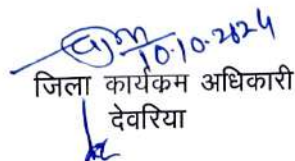 10.10.2024
जिला कार्यकम अधिकारी
देवरिया